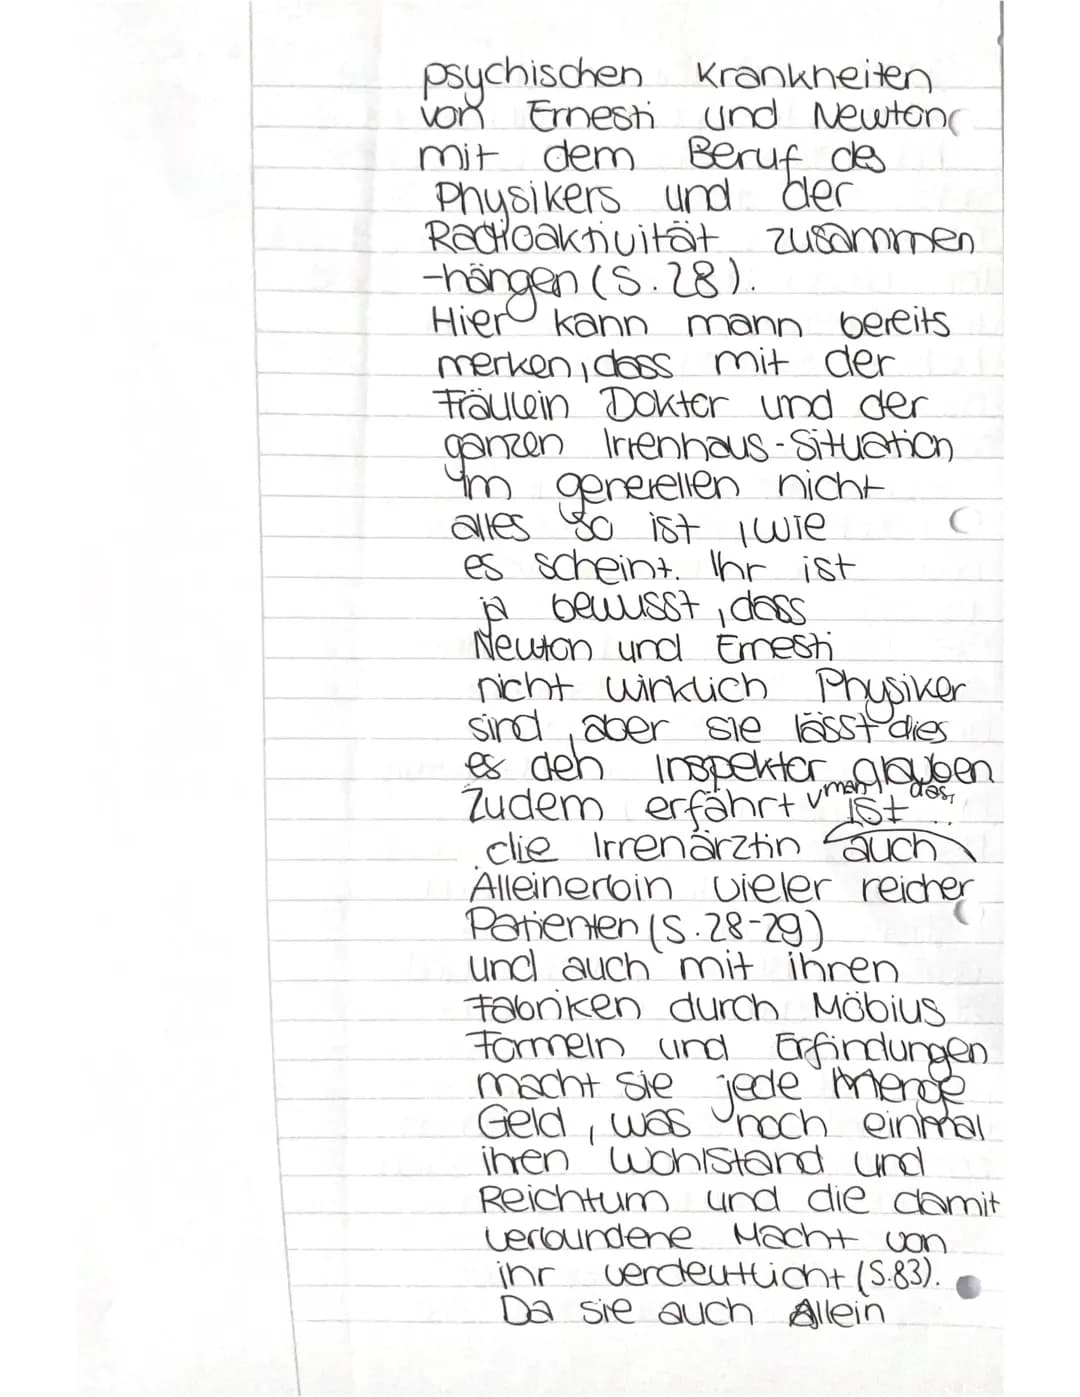 psychischen Krankheiten
von Ernesti und Newton
mit dem Beruf des
Physikers und der
Radioaktivität zusammen
-hängen (S. 28).
Hier kann mann bereits
merken, dass mit der
Fräulein Doktor und der
ganzen Irrenhaus-Situation
im generellen nicht
alles so ist, wie
es scheint. Ihr ist
ja bewusst, dass
Newton und Ernesti
nicht wirklich Physiker
sind, aber sie lässt dies
es den Inspektor glauben
Zudem erfährt man, dass
die Irrenärztin ist auch
Alleinerbin vieler reicher
Patienten (S. 28-29)
und auch mit ihren
Fabriken durch Möbius
Formeln und Erfindungen
macht sie jede Menge
Geld, was noch einmal
ihren Wohlstand und
Reichtum und die damit
verbundene Macht von
ihr verdeutlicht (S.83).
Da sie auch Allein